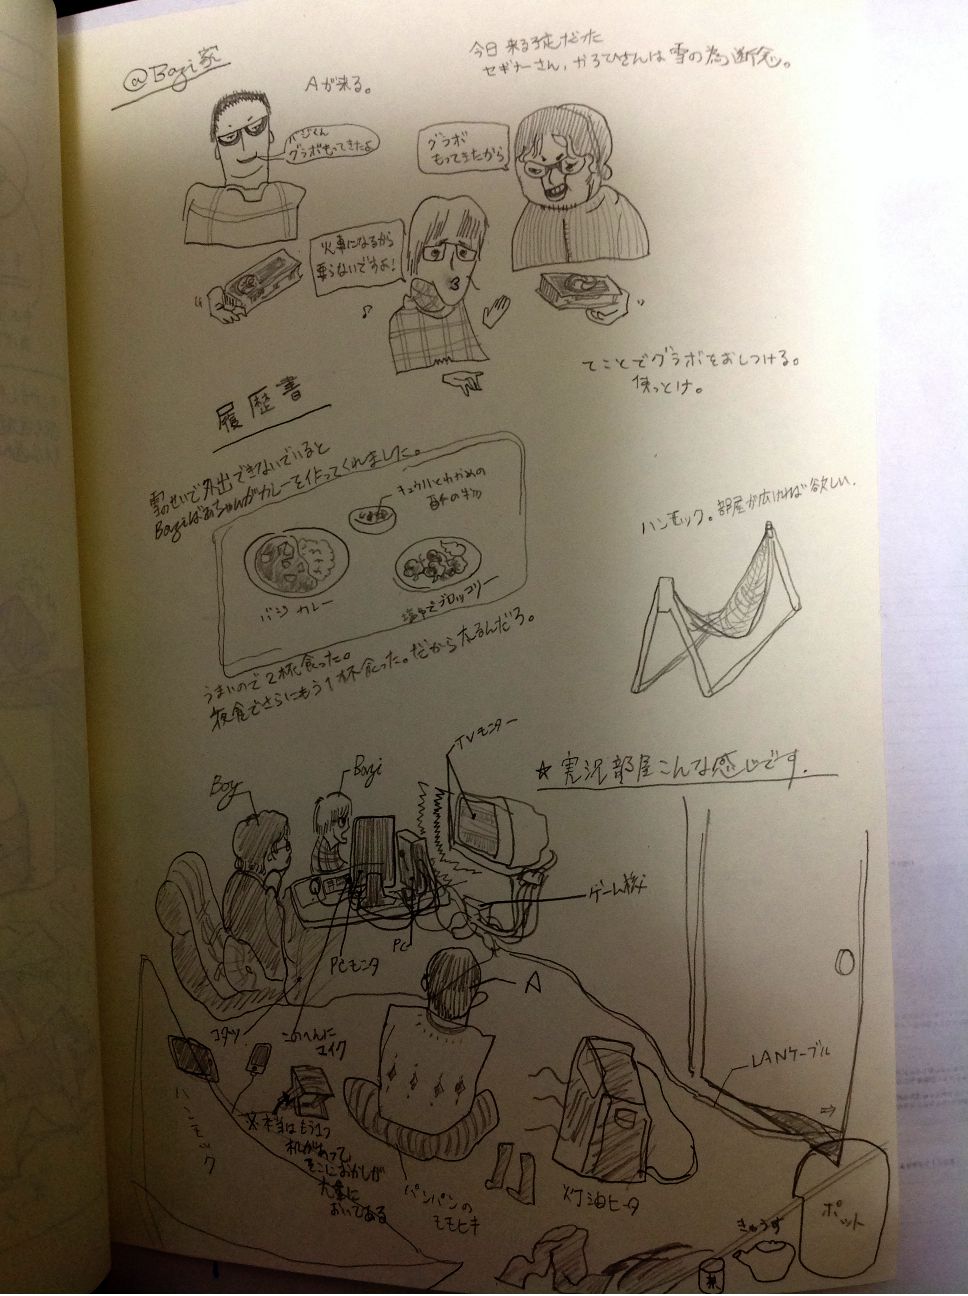 @Bazi家
今日 来る予定だった
セギナーさん、かろひさんは雪の為断念。
Aが来る。
バジくん
グラボもってきたよ
グラボ
もってきたから
火車になるから
要らないですよ!
てことでグラボをおしつける。
使っとけ。
履歴書
雪のせいで外出できないでいると
Baziばあちゃんがカレーを作ってくれました。
キュウリとわかめの
酢の物
バジカレー
塩ゆでブロッコリー
うまいので2杯食った。
夜食でさらにもう1杯食った。だから太るんだろ。
ハンモック。部屋が広ければ欲しい。
★実況部屋こんな感じです.
TVモニター
Boy
Bazi
ゲーム機
PC
PCモニタ
A
コタツ
このへんに
マイク
LANケーブル
ハンモック
※本当はもう1つ
机があって、
そこにおかしが
大量に
おいてある
パンパンの
モモヒキ
灯油ヒータ
きゅうす
茶
ポット